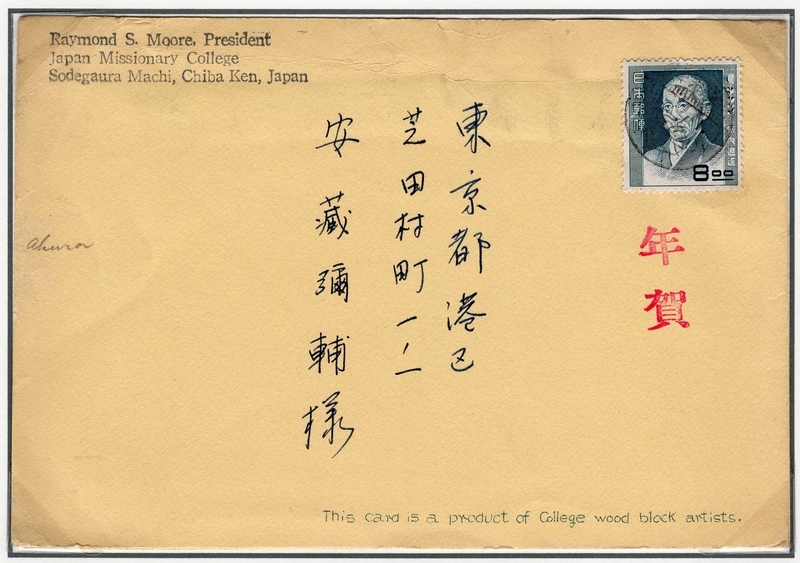 Raymond S. Moore, President
Japan Missionary College
Sodegaura Machi, Chiba Ken, Japan
日本郵便
8.00
年賀
東京都港区
芝田村町一ノ一
安藏彌輔様
This card is a product of College wood block artists.